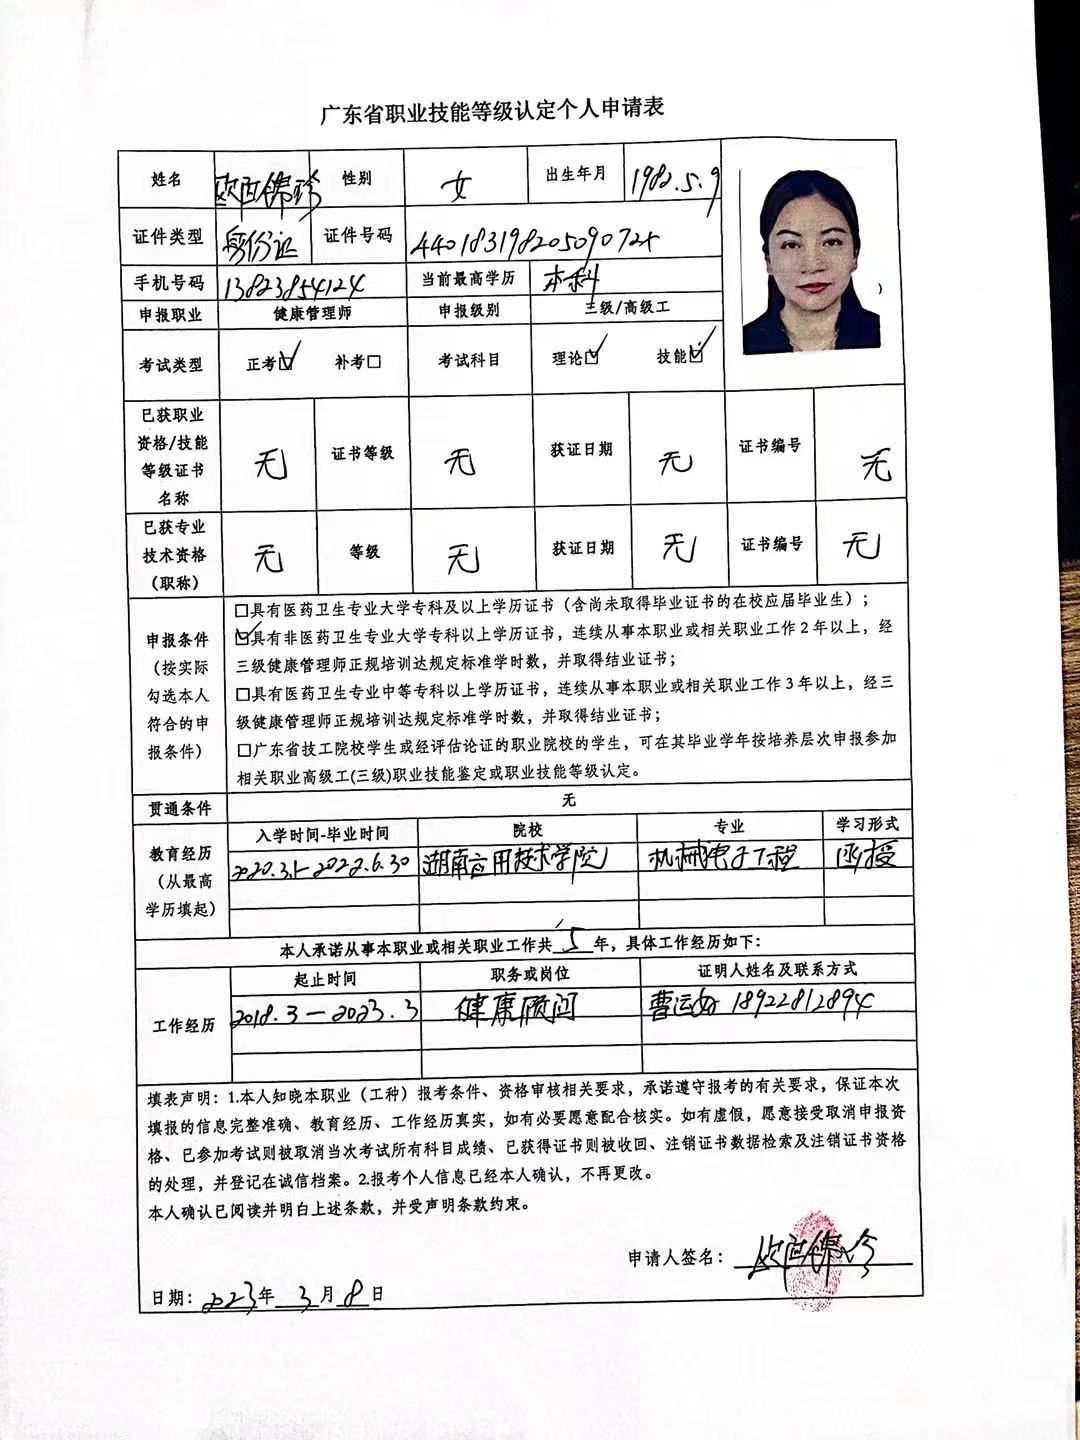 广东省职业技能等级认定个人申请表
姓名 欧阳锦珍 性别 女 出生年月 1982.5.9
证件类型 身份证 证件号码 44018319820509072x
手机号码 13823854124 当前最高学历 本科
申报职业 健康管理师 申报级别 三级/高级工
考试类型 正考☑ 补考□ 考试科目 理论☑ 技能☑
已获职业资格/技能等级证书名称 无 证书等级 无 获证日期 无 证书编号 无
已获专业技术资格（职称） 无 等级 无 获证日期 无 证书编号 无
申报条件（按实际勾选本人符合的申报条件）
□具有医药卫生专业大学专科及以上学历证书（含尚未取得毕业证书的在校应届毕业生）；
☑具有非医药卫生专业大学专科以上学历证书，连续从事本职业或相关职业工作2年以上，经
三级健康管理师正规培训达规定标准学时数，并取得结业证书；
□具有医药卫生专业中等专科以上学历证书，连续从事本职业或相关职业工作3年以上，经三
级健康管理师正规培训达规定标准学时数，并取得结业证书；
□广东省技工院校学生或经评估论证的职业院校的学生，可在其毕业学年按培养层次申报参加
相关职业高级工(三级)职业技能鉴定或职业技能等级认定。
贯通条件 无
教育经历（从最高学历填起） 入学时间-毕业时间 院校 专业 学习形式
2020.3.1-2022.6.30 湖南应用技术学院 机械电子工程 函授
本人承诺从事本职业或相关职业工作共 5 年，具体工作经历如下：
工作经历 起止时间 职务或岗位 证明人姓名及联系方式
2018.3—2023.3 健康顾问 曹运 18922812894
填表声明：1.本人知晓本职业（工种）报考条件、资格审核相关要求，承诺遵守报考的有关要求，保证本次
填报的信息完整准确、教育经历、工作经历真实，如有必要愿意配合核实。如有虚假，愿意接受取消申报资
格、已参加考试则被取消当次考试所有科目成绩、已获得证书则被收回、注销证书数据检索及注销证书资格
的处理，并登记在诚信档案。2.报考个人信息已经本人确认，不再更改。
本人确认已阅读并明白上述条款，并受声明条款约束。
申请人签名：欧阳锦珍
日期：2023年3月8日